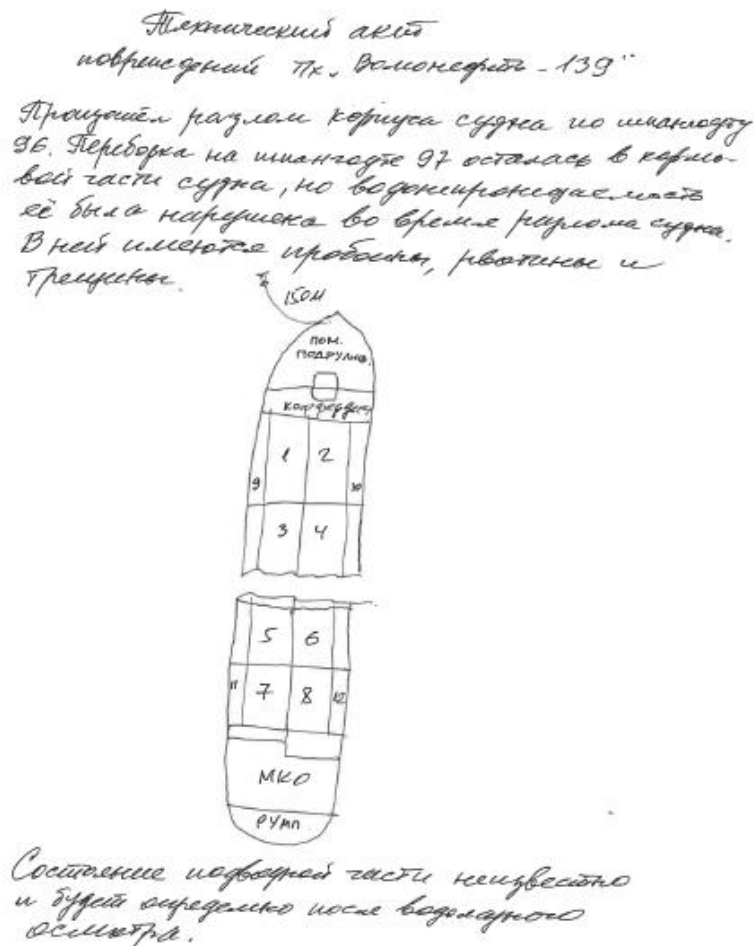 Технический акт
повреждений Тх. „Волгонефть - 139"
Произошёл разлом корпуса судна по шпангоуту
96. Переборка на шпангоуте 97 осталась в кормо-
вой части судна, но водонепроницаемость
её была нарушена во время разлома судна.
В ней имеются пробоины, рватины и
трещины.
150м
пом.
подрулив.
коффердам
1 2
9 10
3 4
5 6
11 7 8 12
МКО
РУМП.
Состояние подводной части неизвестно
и будет определено после водолазного
осмотра.